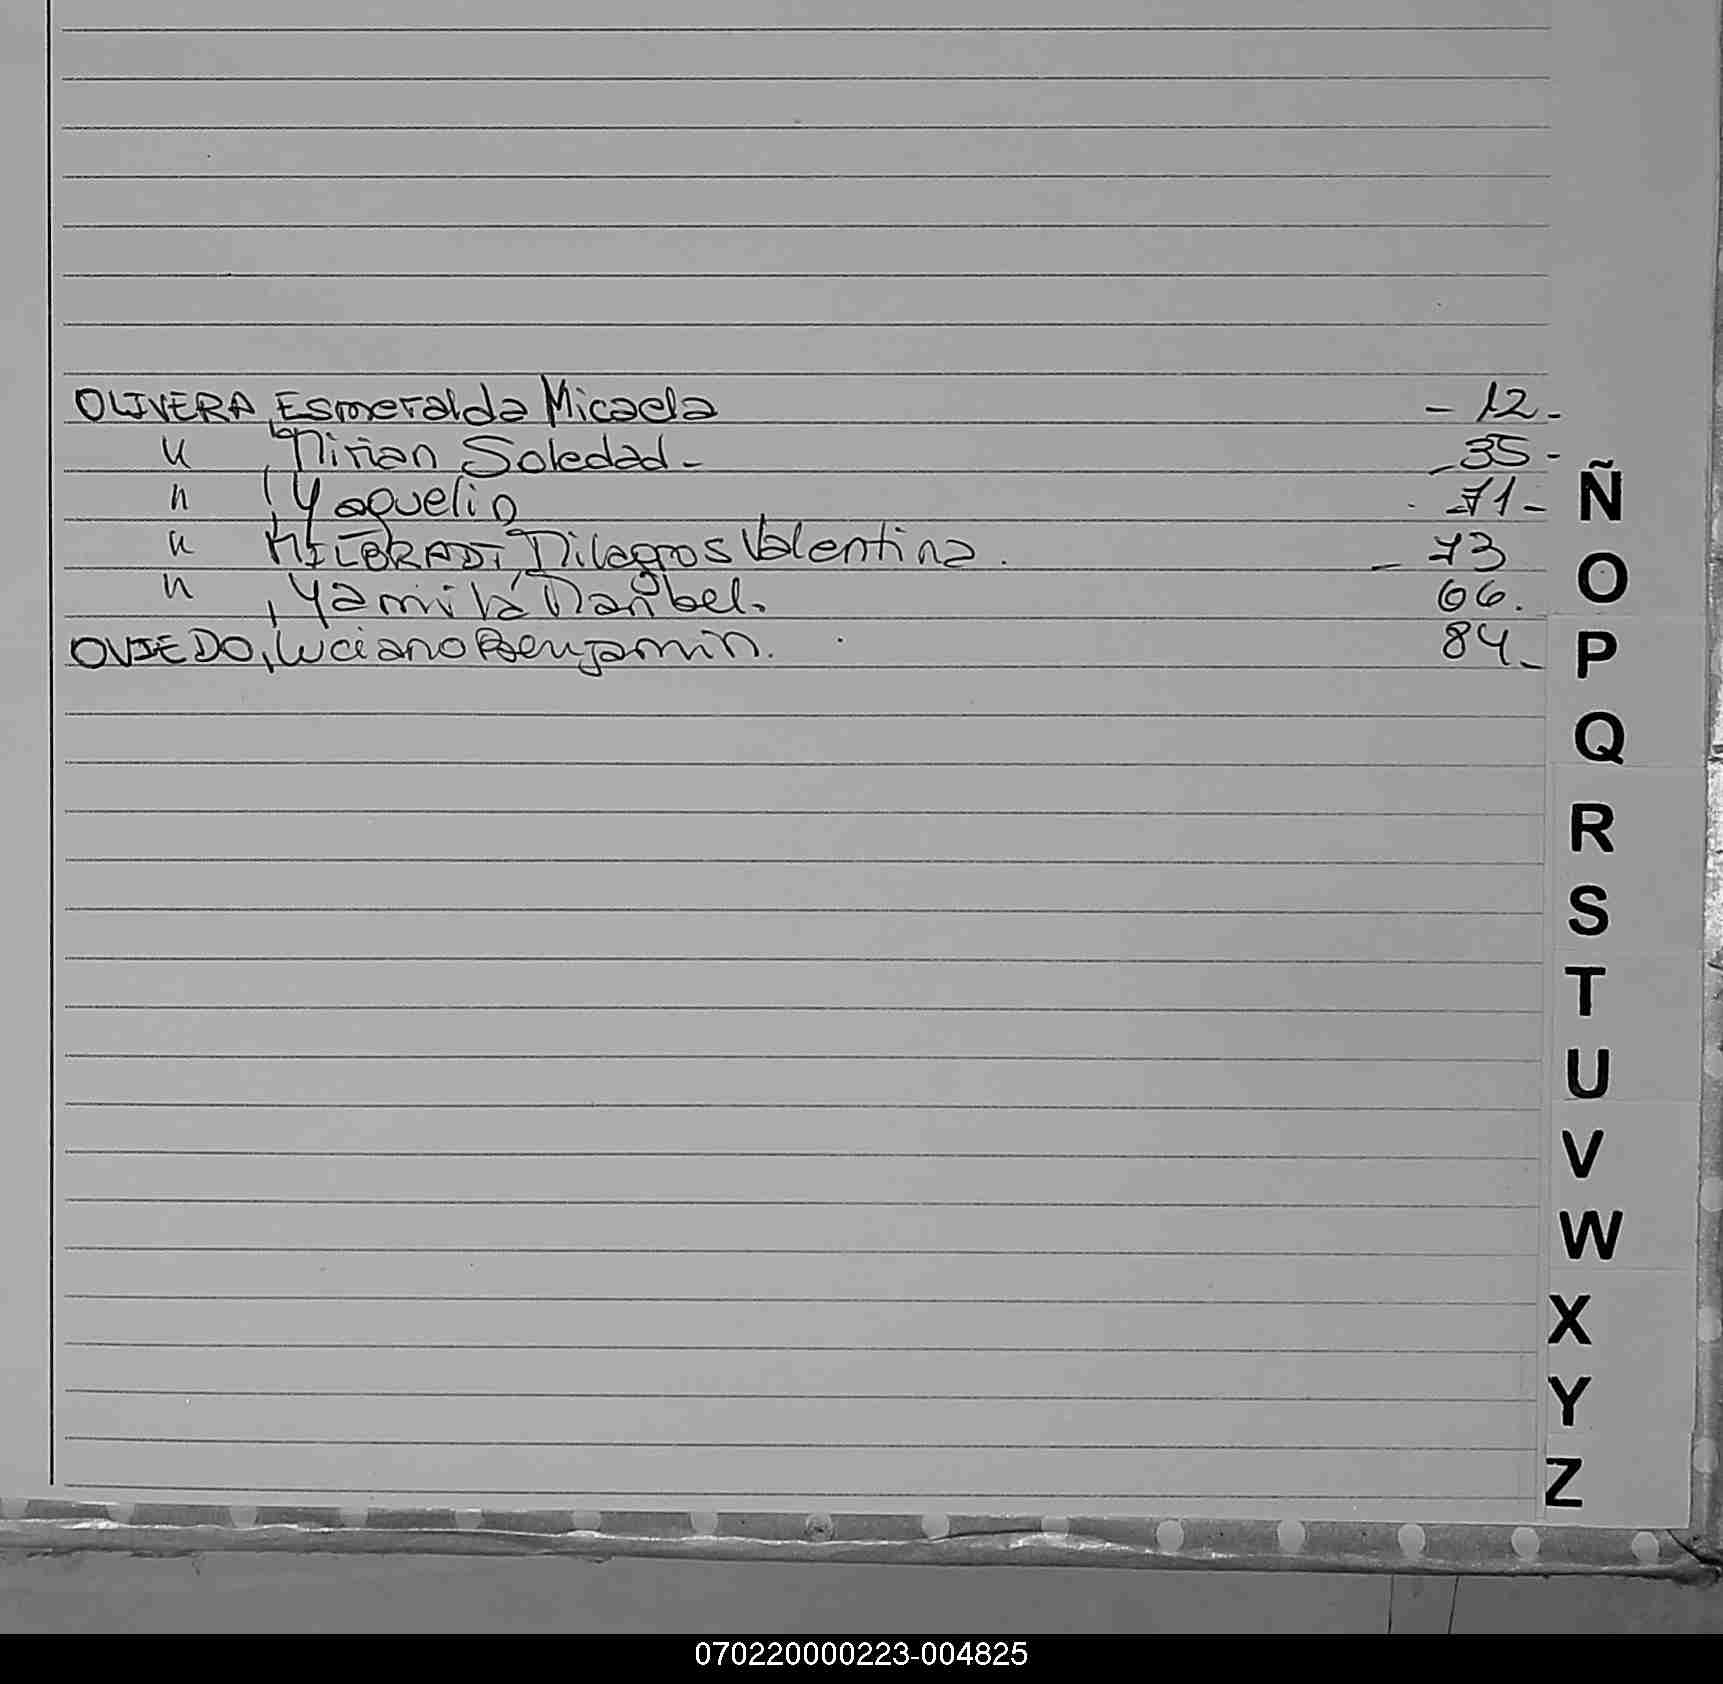 OLIVERA, Esmeralda Micaela - 12 -
" , Mirian Soledad - - 35 -
" , Yaquelin - 71 -
" MILBRADT, Milagros Valentina . - 73
" , Yamila Maribel. 66.
OVIEDO, Luciano Benjamin. 84 -
Ñ
O
P
Q
R
S
T
U
V
W
X
Y
Z
070220000223-004825